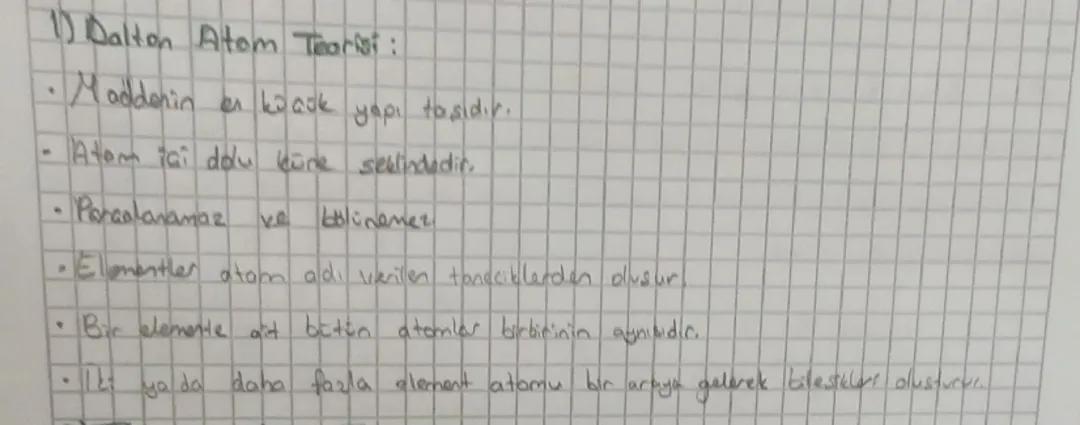 1) Dalton Atom Teorisi:
• Maddenin en küçük yapı tasıdır.
- Atom içi dolu küre seklindedir.
• Parcalanamaz ve bölünemez
• Elementler atom adı verilen taneciklerden olusur.
• Bir elemente ait bütün atomlar birbirinin aynısıdır.
• İki ya da daha fazla element atomu bir araya gelerek bilesikleri olusturur.